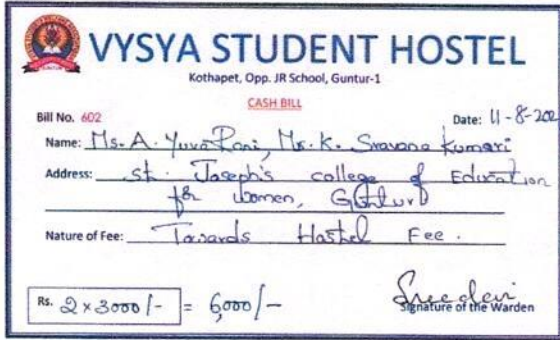 VYSYA STUDENT HOSTEL
Kothapet, Opp. JR School, Guntur-1
CASH BILL
Bill No. 602
Date: 11-8-202
Name: Ms. A. Yuva Rani, Ms. K. Sravana Kumari
Address: St. Joseph's college of Education
for women, Guntur
Nature of Fee: Towards Hostel Fee.
Rs. 2x3000/- = 6,000/-
Sreedevi
Signature of the Warden